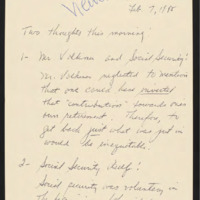 Feb 7, 1985
Two thoughts this morning
1- Mr. and Social Security:
Mr. neglected to mention
that one could have invested
that "contribution" towards ones
own retirement. Therefore, to
get back just what was put in
would be inequitable.
2- Social Security itself:
Social security was voluntary in